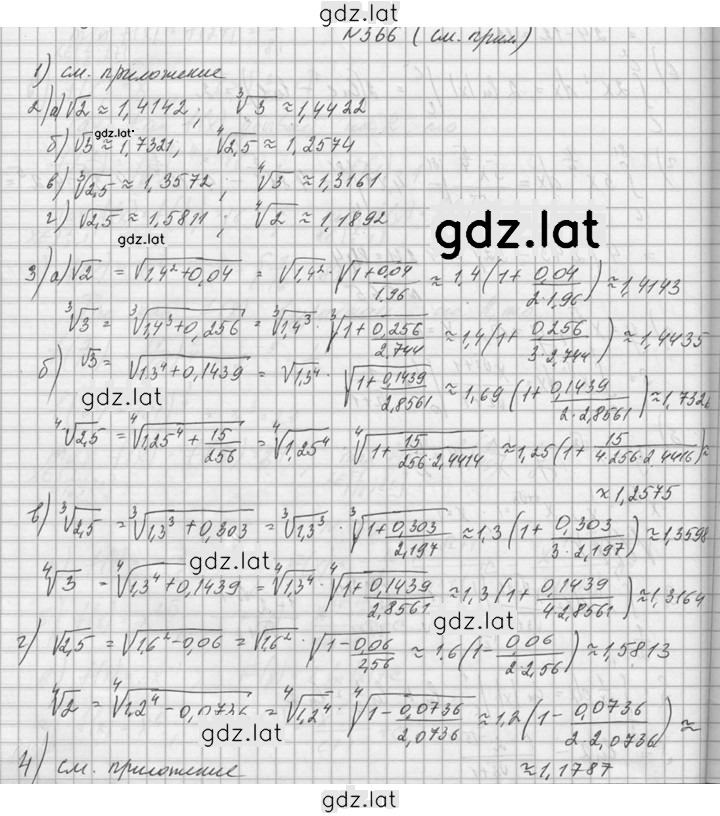 gdz.lat
№366 (см. прил)
1) см. приложение
2) а) √2 ≈ 1,4142; ∛3 ≈ 1,4422
gdz.lat
б) √3 ≈ 1,7321, ∜2,5 ≈ 1,2574
в) ∛2,5 ≈ 1,3572; ∜3 ≈ 1,3161
г) √2,5 ≈ 1,5811; ∜2 ≈ 1,1892
gdz.lat
gdz.lat
3) а) √2 = √(1,4² + 0,04) = √1,4² · √(1 + 0,04/1,96) ≈ 1,4(1 + 0,04/(2·1,96)) ≈ 1,4143
∛3 = ∛(1,4³ + 0,256) = ∛1,4³ · ∛(1 + 0,256/2,744) ≈ 1,4(1 + 0,256/(3·2,744)) ≈ 1,4435
б) √3 = √(1,3⁴ + 0,1439) = √1,3⁴ · √(1 + 0,1439/2,8561) ≈ 1,69(1 + 0,1439/(2·2,8561)) ≈ 1,7326
gdz.lat
∜2,5 = ∜(1,25⁴ + 15/256) = ∜1,25⁴ ∜(1 + 15/(256·2,4414)) ≈ 1,25(1 + 15/(4·256·2,4416)) ≈
≈ 1,2575
в) ∛2,5 = ∛(1,3³ + 0,303) = ∛1,3³ · ∛(1 + 0,303/2,197) ≈ 1,3(1 + 0,303/(3·2,197)) ≈ 1,3598
gdz.lat
∜3 = ∜(1,3⁴ + 0,1439) = ∜1,3⁴ · ∜(1 + 0,1439/2,8561) ≈ 1,3(1 + 0,1439/(4·2,8561)) ≈ 1,3164
gdz.lat
г) √2,5 = √(1,6² - 0,06) = √1,6² · √(1 - 0,06/2,56) ≈ 1,6(1 - 0,06/(2·2,56)) ≈ 1,5813
∜2 = ∜(1,2⁴ - 0,0736) = ∜1,2⁴ · ∜(1 - 0,0736/2,0736) ≈ 1,2(1 - 0,0736/(2·2,0736)) ≈
gdz.lat
≈ 1,1787
4) см. приложение
gdz.lat